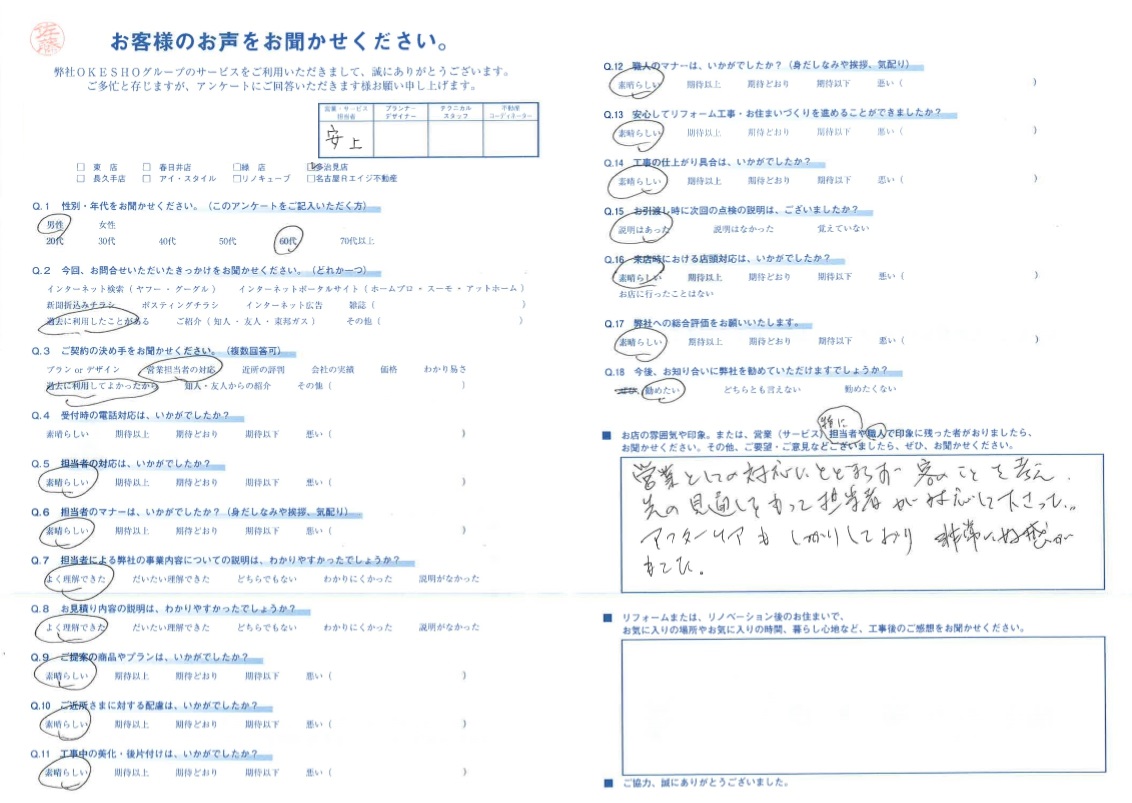 佐藤
お客様のお声をお聞かせください。
弊社OKESHOグループのサービスをご利用いただきまして、誠にありがとうございます。
ご多忙と存じますが、アンケートにご回答いただきます様お願い申し上げます。
営業・サービス担当者 プランナーデザイナー テクニカルスタッフ 不動産コーディネーター
安上
□ 東 店 □ 春日井店 □緑 店 □多治見店
□ 長久手店 □ アイ・スタイル □リノキューブ □名古屋Rエイジ不動産
Q.1 性別・年代をお聞かせください。（このアンケートをご記入いただく方）
男性 女性
20代 30代 40代 50代 60代 70代以上
Q.2 今回、お問合せいただいたきっかけをお聞かせください。（どれか一つ）
インターネット検索（ ヤフー ・ グーグル ） インターネットポータルサイト（ ホームプロ ・ スーモ ・ アットホーム ）
新聞折込みチラシ ポスティングチラシ インターネット広告 雑誌（ ）
過去に利用したことがある ご紹介（ 知人 ・ 友人 ・ 東邦ガス ） その他（ ）
Q.3 ご契約の決め手をお聞かせください。（複数回答可）
プラン or デザイン 営業担当者の対応 近所の評判 会社の実績 価格 わかり易さ
過去に利用してよかったから 知人・友人からの紹介 その他（ ）
Q.4 受付時の電話対応は、いかがでしたか？
素晴らしい 期待以上 期待どおり 期待以下 悪い（ ）
Q.5 担当者の対応は、いかがでしたか？
素晴らしい 期待以上 期待どおり 期待以下 悪い（ ）
Q.6 担当者のマナーは、いかがでしたか？（身だしなみや挨拶、気配り）
素晴らしい 期待以上 期待どおり 期待以下 悪い（ ）
Q.7 担当者による弊社の事業内容についての説明は、わかりやすかったでしょうか？
よく理解できた だいたい理解できた どちらでもない わかりにくかった 説明がなかった
Q.8 お見積り内容の説明は、わかりやすかったでしょうか？
よく理解できた だいたい理解できた どちらでもない わかりにくかった 説明がなかった
Q.9 ご提案の商品やプランは、いかがでしたか？
素晴らしい 期待以上 期待どおり 期待以下 悪い（ ）
Q.10 ご近所さまに対する配慮は、いかがでしたか？
素晴らしい 期待以上 期待どおり 期待以下 悪い（ ）
Q.11 工事中の美化・後片付けは、いかがでしたか？
素晴らしい 期待以上 期待どおり 期待以下 悪い（ ）
Q.12 職人のマナーは、いかがでしたか？（身だしなみや挨拶、気配り）
素晴らしい 期待以上 期待どおり 期待以下 悪い（ ）
Q.13 安心してリフォーム工事・お住まいづくりを進めることができましたか？
素晴らしい 期待以上 期待どおり 期待以下 悪い（ ）
Q.14 工事の仕上がり具合は、いかがでしたか？
素晴らしい 期待以上 期待どおり 期待以下 悪い（ ）
Q.15 お引渡し時に次回の点検の説明は、ございましたか？
説明はあった 説明はなかった 覚えていない
Q.16 来店時における店頭対応は、いかがでしたか？
素晴らしい 期待以上 期待どおり 期待以下 悪い（ ）
お店に行ったことはない
Q.17 弊社への総合評価をお願いいたします。
素晴らしい 期待以上 期待どおり 期待以下 悪い（ ）
Q.18 今後、お知り合いに弊社を勧めていただけますでしょうか？
ぜひ、勧めたい どちらとも言えない 勧めたくない
特に
■ お店の雰囲気や印象。または、営業（サービス）担当者や職人で印象に残った者がおりましたら、
お聞かせください。その他、ご要望・ご意見などございましたら、ぜひ、お聞かせください。
営業としての対応にとどまらず 客のことを考え、
先の見通しをもって担当者が対応して下さった。
アフターケアも しっかりしており 非常に好感が
もてた。
■ リフォームまたは、リノベーション後のお住まいで、
お気に入りの場所やお気に入りの時間、暮らし心地など、工事後のご感想をお聞かせください。
■ ご協力、誠にありがとうございました。